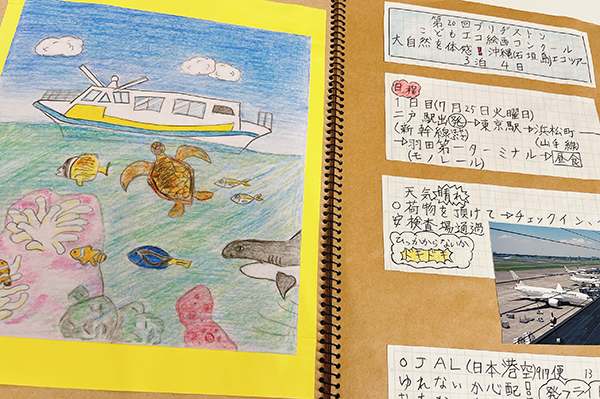 第20回ブリヂストン
こどもエコ絵画コンクール
大自然を体感!沖縄(石垣島)エコツアー
3泊4日
日程
1日目(7月25日火曜日)
二戸駅出発→東京駅→浜松町
(新幹線)(山手線)
→羽田第一ターミナル→昼食
(モノレール)
天気晴れ
○荷物を預けて→チェックイン、
安検査場通過
ひっかからないか
ドキドキ
○JAL(日本港空)917便
ゆれないか心配!!
13
発フライ